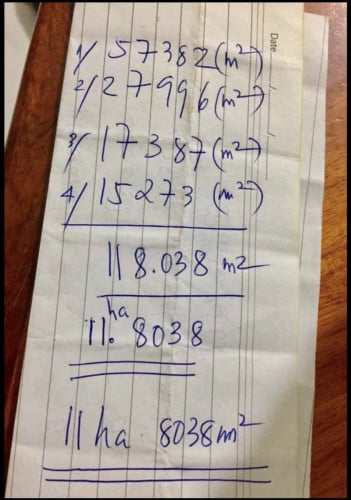 Date
1/ 57382 (m²)
2/ 27996 (m²)
3/ 17387 (m²)
4/ 15273 (m²)
118.038 m2
11.ha 8038
11 ha 8038m²